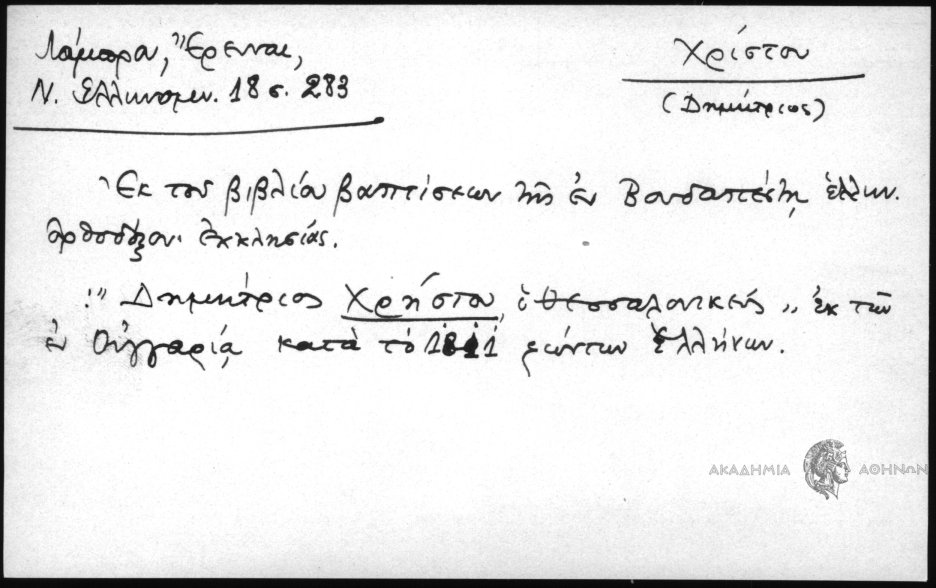 Λάμπρου, Ἔρευναι,
Ν. Ἑλληνομν. 18 σ. 283
Χρίστου
(Δημήτριος)
Ἐκ τοῦ βιβλίου βαπτίσεων τῆς ἐν Βουδαπέστῃ ἑλλην.
ὀρθοδόξου ἐκκλησίας.
"Δημήτριος Χρήστου, ὁ Θεσσαλονικεύς" ἐκ τῶν
ἐν Οὑγγαρίᾳ κατὰ τὸ ζώντων Ἑλλήνων.
ΑΚΑΔΗΜΙΑ ΑΘΗΝΩΝ